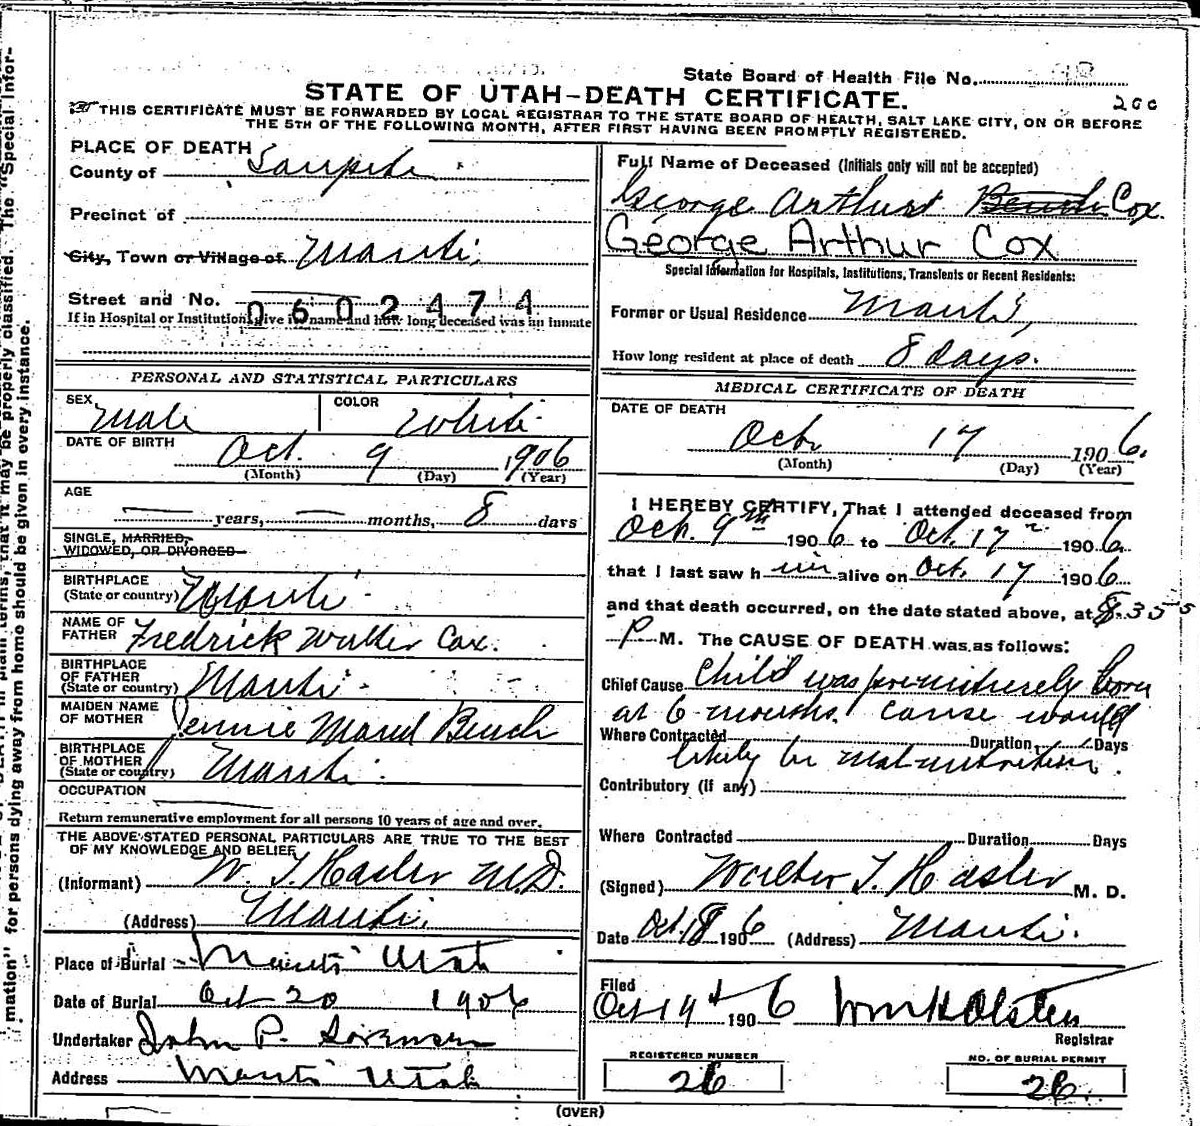 State Board of Health File No.
STATE OF UTAH—DEATH CERTIFICATE. 200
THIS CERTIFICATE MUST BE FORWARDED BY LOCAL REGISTRAR TO THE STATE BOARD OF HEALTH, SALT LAKE CITY, ON OR BEFORE
THE 5TH OF THE FOLLOWING MONTH, AFTER FIRST HAVING BEEN PROMPTLY REGISTERED.
PLACE OF DEATH
County of Sanpete
Precinct of
City, Town or Village of Manti
Street and No.
0602474
If in Hospital or Institution, give its name and how long deceased was an inmate
PERSONAL AND STATISTICAL PARTICULARS
SEX Male COLOR White
DATE OF BIRTH Oct. 9 1906
(Month) (Day) (Year)
AGE
— years, — months, 8 days
SINGLE, MARRIED,
WIDOWED, OR DIVORCED
BIRTHPLACE
(State or country) Manti
NAME OF
FATHER Fredrick Walter Cox.
BIRTHPLACE
OF FATHER
(State or country) Manti
MAIDEN NAME
OF MOTHER Jennie Maud Bench
BIRTHPLACE
OF MOTHER
(State or country) Manti
OCCUPATION
Return remunerative employment for all persons 10 years of age and over.
THE ABOVE STATED PERSONAL PARTICULARS ARE TRUE TO THE BEST
OF MY KNOWLEDGE AND BELIEF
(Informant) W. T. Hasler M.D.
(Address) Manti.
Place of Burial Manti Utah
Date of Burial Oct 20 1906
Undertaker John P. Sorensen
Address Manti Utah
Full Name of Deceased (Initials only will not be accepted)
George Arthur Bench Cox.
George Arthur Cox
Special Information for Hospitals, Institutions, Transients or Recent Residents:
Former or Usual Residence Manti,
How long resident at place of death 8 days.
MEDICAL CERTIFICATE OF DEATH
DATE OF DEATH
Oct 17 1906.
(Month) (Day) (Year)
I HEREBY CERTIFY, That I attended deceased from
Oct. 9th 1906 to Oct. 17 1906.
that I last saw him alive on Oct. 17 1906.
and that death occurred, on the date stated above, at 8.35
P M. The CAUSE OF DEATH was as follows:
Chief Cause Child was prematurely born
at 6 months. Cause would
Where Contracted Duration Days
likely be mal-nutrition.
Contributory (if any)
Where Contracted Duration Days
(Signed) Walter T. Hasler M. D.
Date Oct. 18 1906 (Address) Manti.
Filed
Oct 19th 1906 Wm H Olsten
Registrar
REGISTERED NUMBER
26
NO. OF BURIAL PERMIT
26.
(OVER)
mation" for persons dying away from home should be given in every instance.